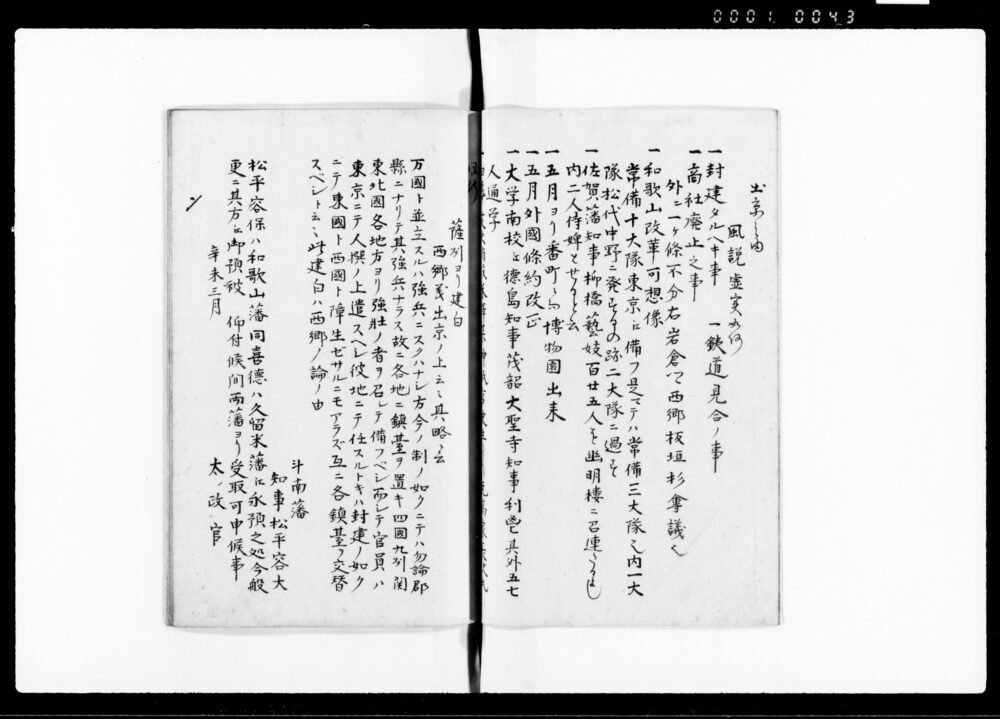 0001 0043
出京之由
風説虚実如何
一封建タルヘキ事 一鉄道見合ノ事
一商社廃止之事
外ニ一ケ條不分右岩倉ニて西郷板垣杉會議之
一和歌山改革可想像
常備十大隊東京ニ備フ是迠テハ常備三大隊之内一大
隊松代中野ニ発するの跡二大隊ニ過
一佐賀藩知事柳橋藝妓百廿五人を幽明樓ニ召連
内二人侍婢とせると云
一五月ヨリ番町ニ而博物園出来
一五月外國條約改正
一大学南校江德島知事茂韶大聖寺知事利鬯其外五七
人通学
薩列ヨリ建白
西郷氏出京ノ上云々其略ニ云
万國ト並立スルハ強兵ニスクハナシ方今ノ制ノ如クニテハ勿論郡
縣ニナリテ其強兵ナラス故ニ各地ニ鎮䑓ヲ置キ四國九列関
東北國各地方ヨリ強壮ノ者ヲ召シテ備フベシ而シテ官員ハ
東京ニテ人撰ノ上遣スヘシ彼地ニテ任スルトキハ封建ノ如ク
ニテ東國ト西國ト障生ゼサルニモアラズ互ニ各鎮䑓ヲ交替
スベシト云々此建白ハ西郷ノ論ノ由
斗南藩
知事松平容大
松平容保ハ和歌山藩同喜德ハ久留米藩江永預之処今般
更ニ其方江御預被 仰付候間両藩ヨリ受取可申候事
辛未三月 太政官